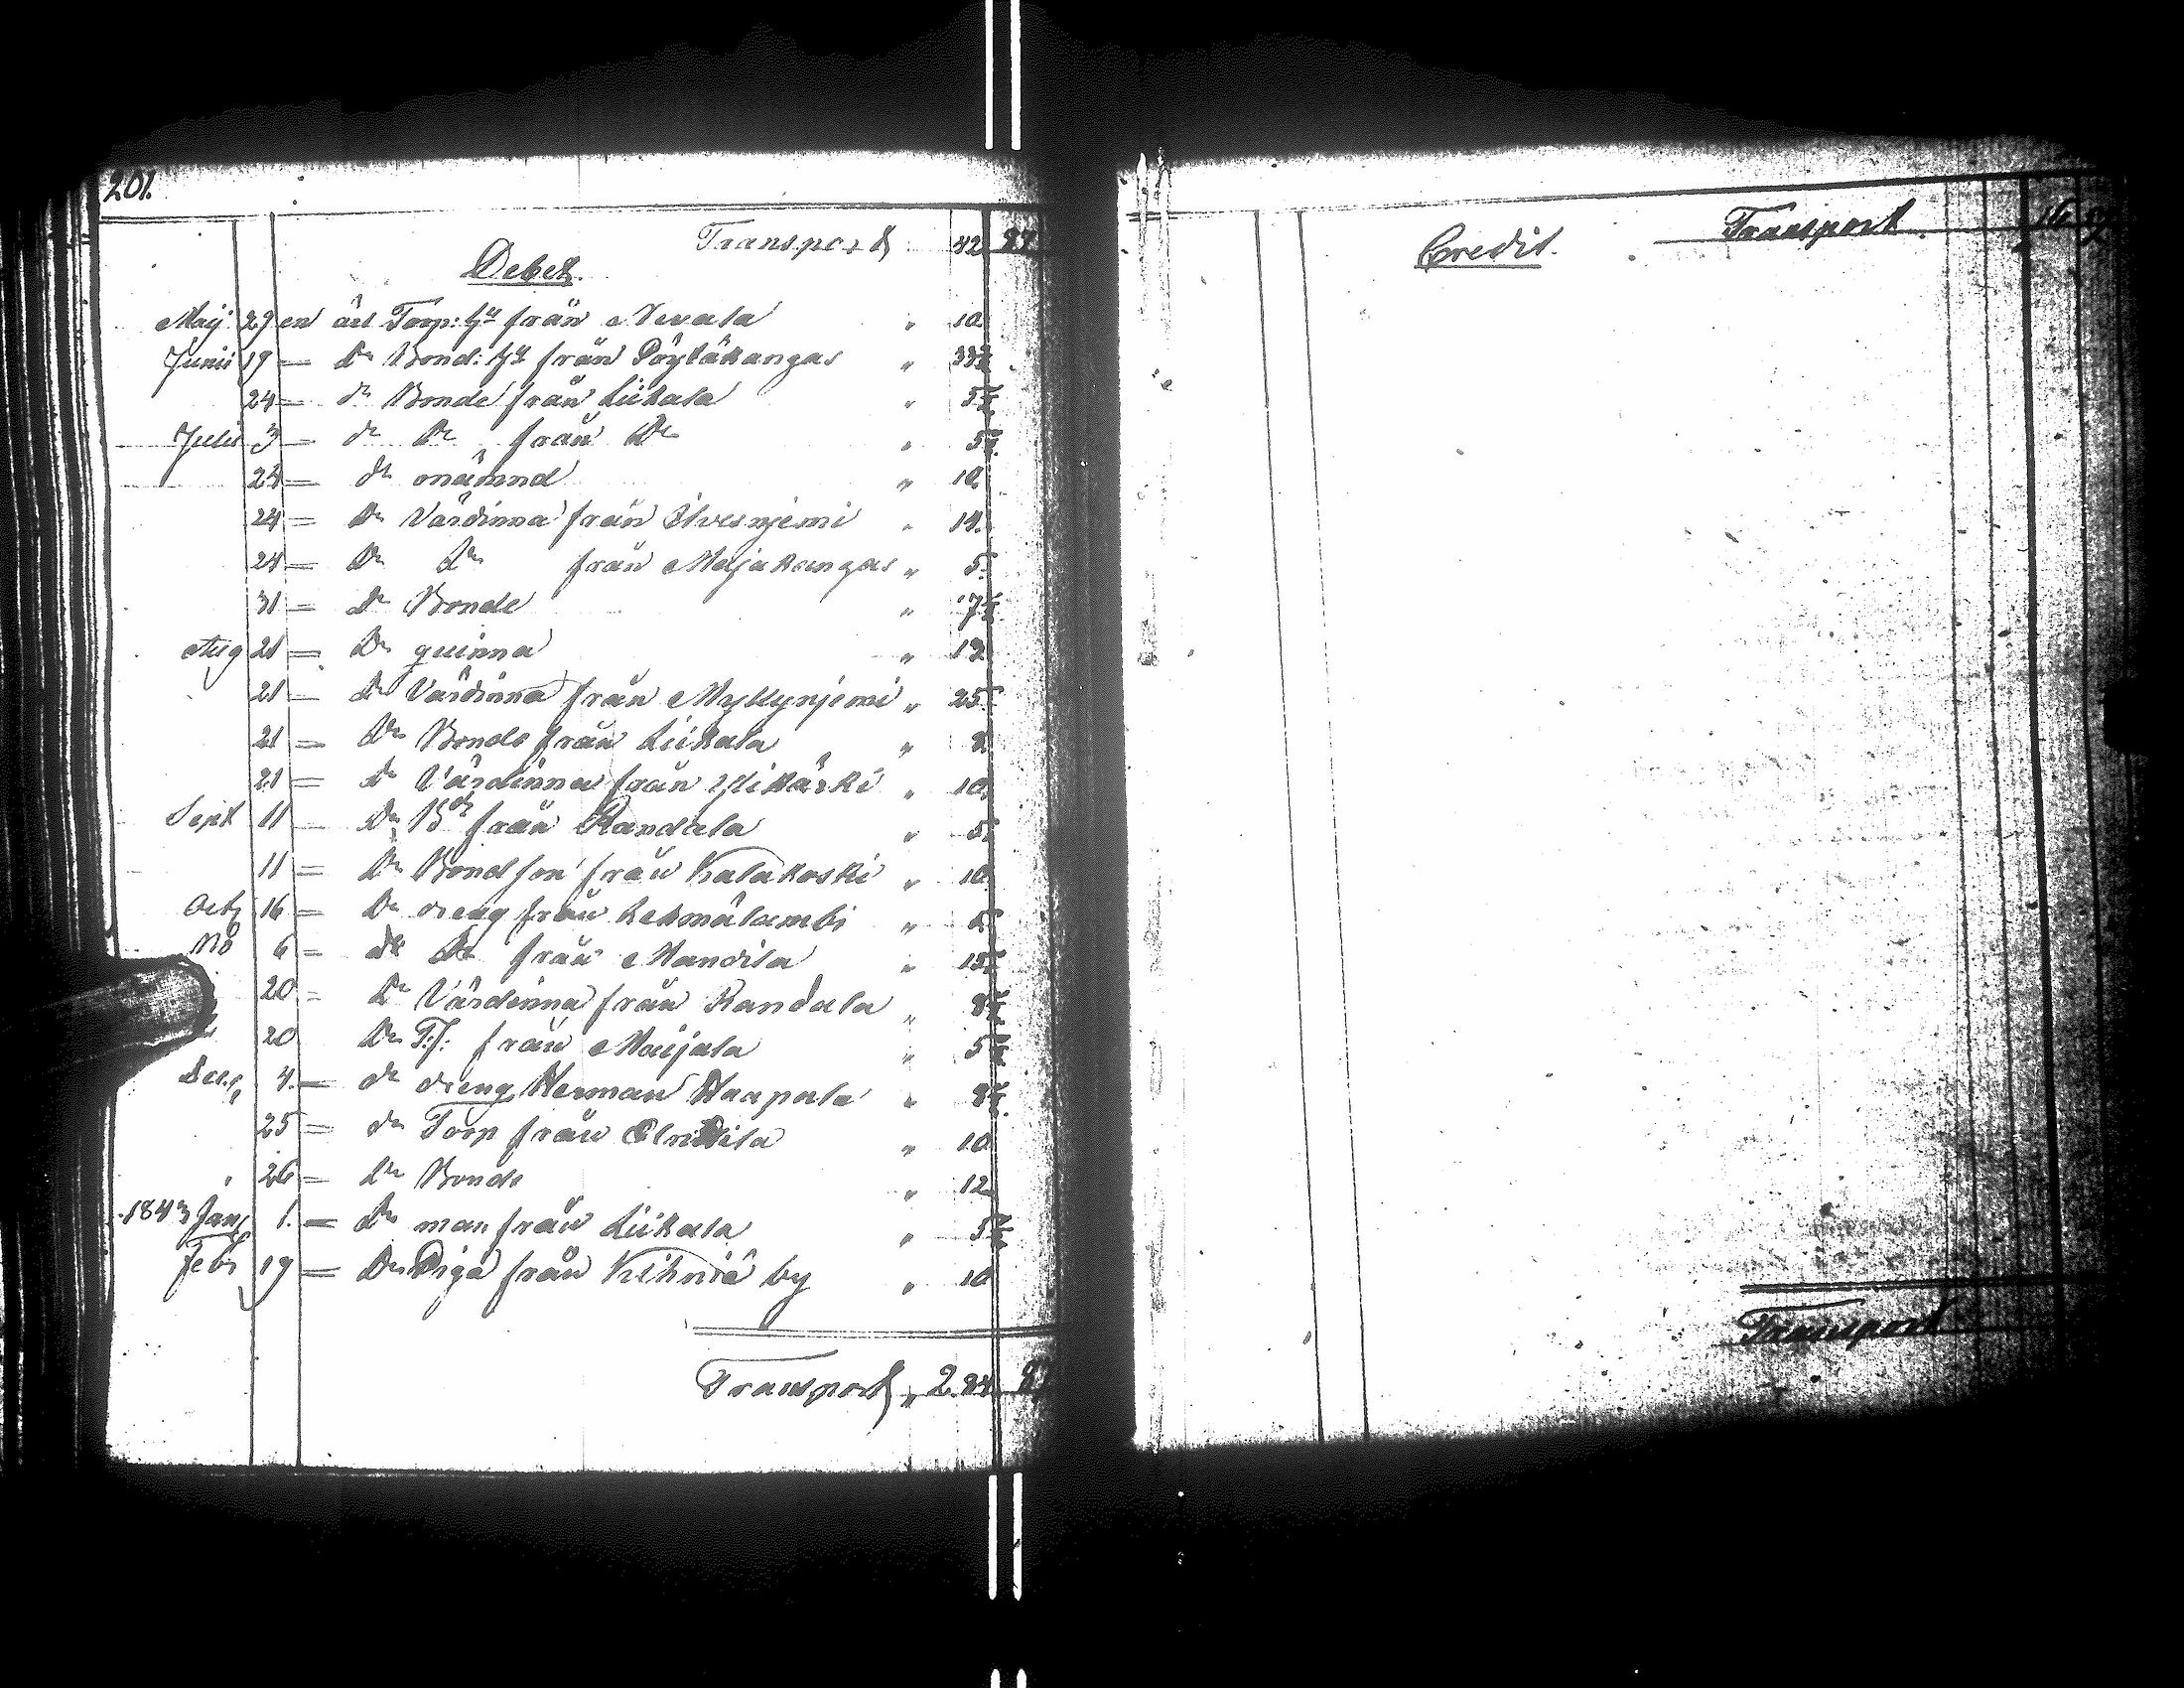 201.
Transport 42 87
Debet.
Maij 29 en ärl Torp: hu från Nevala " 10
Junii 19 = Do Bond: hu från Pöytäkangas " 33
24 = do Bonde från Liikala " 5
Julii 3 = do Do från Do " 5
24 = do mämnd " 10.
24 = Do Värdinna från Elvesnjemi " 14.
24 = Do Do från Majakangas " 5.
31 = Do Bonde " 7
Aug 21 = Do quinna " 12
21 = Do Värdinna från Myllynjemi " 25
21 = Do Bonde från Liikala " 8
21 = do Värdinna från Ylikäski " 10
Sept 11 = Do från Randala " 5
11 = Do Bondson från Kalakoski " 10
Octb 16 = Do dreng från Lehmälambi " 5
No 6 = do Do från Mandila " 15
20 = Do Värdinna från Randala " 8
20 Do T:J: från Maijala " 5
Dec. 4. = do dreng Herman Haapala " 8
25 = do Torp från " 10
" 26 = Do Bonde " 12
1843 Jan 1. = Do man från Liikala " 5
Febr 19 = Do Piga från Kihniä by " 10
Transport " 2.84
Credit.
Transport 16
Transport